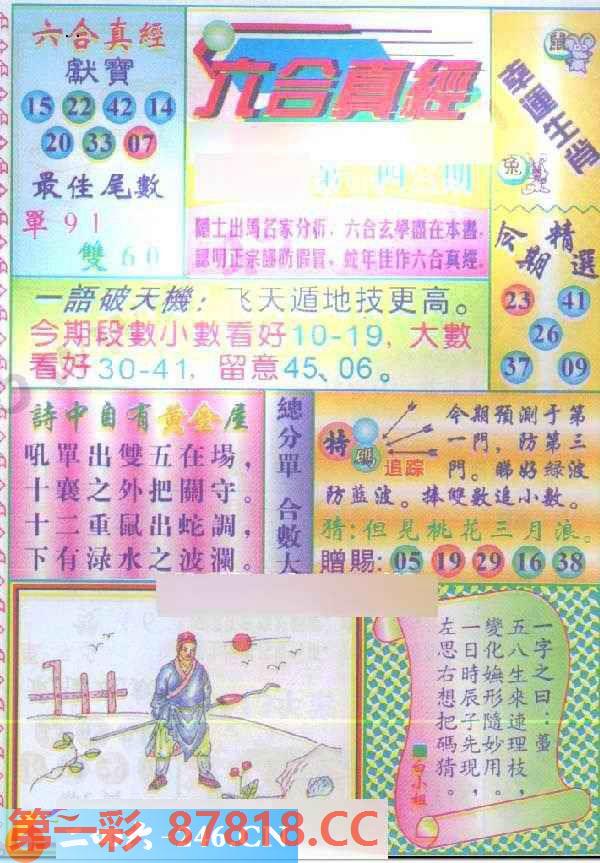 六合真經
獻寶
15 22 42 14
20 33 07
最佳尾數
單 91
雙 60
六合真經
幸運生肖
鼠
兔
隱士出馬名家分析，六合玄學盡在本書.
認明正宗謹防假冒，蛇年佳作六合真經.
今期精選
23 41
26
37 09
一語破天機：飞天遁地技更高。
今期段數小數看好10-19，大數
看好30-41，留意45、06。
詩中自有黃金屋
吼單出雙五在場，
十襄之外把關守。
十二重鼠出蛇調，
下有渌水之波瀾。
總分單 合數大
特碼
追踪
今期預測于第
一門，防第三
門。睇好綠波
防蓝波。捧雙數追小數。
猜：但見桃花三月浪。
贈賜：05 19 29 16 38
一字之曰：蠆
五八生來連理枝，
變化嫵形隨妙用。
一日時辰子先現，
左思右想把碼猜。
白小姐
第一彩 87818.CC